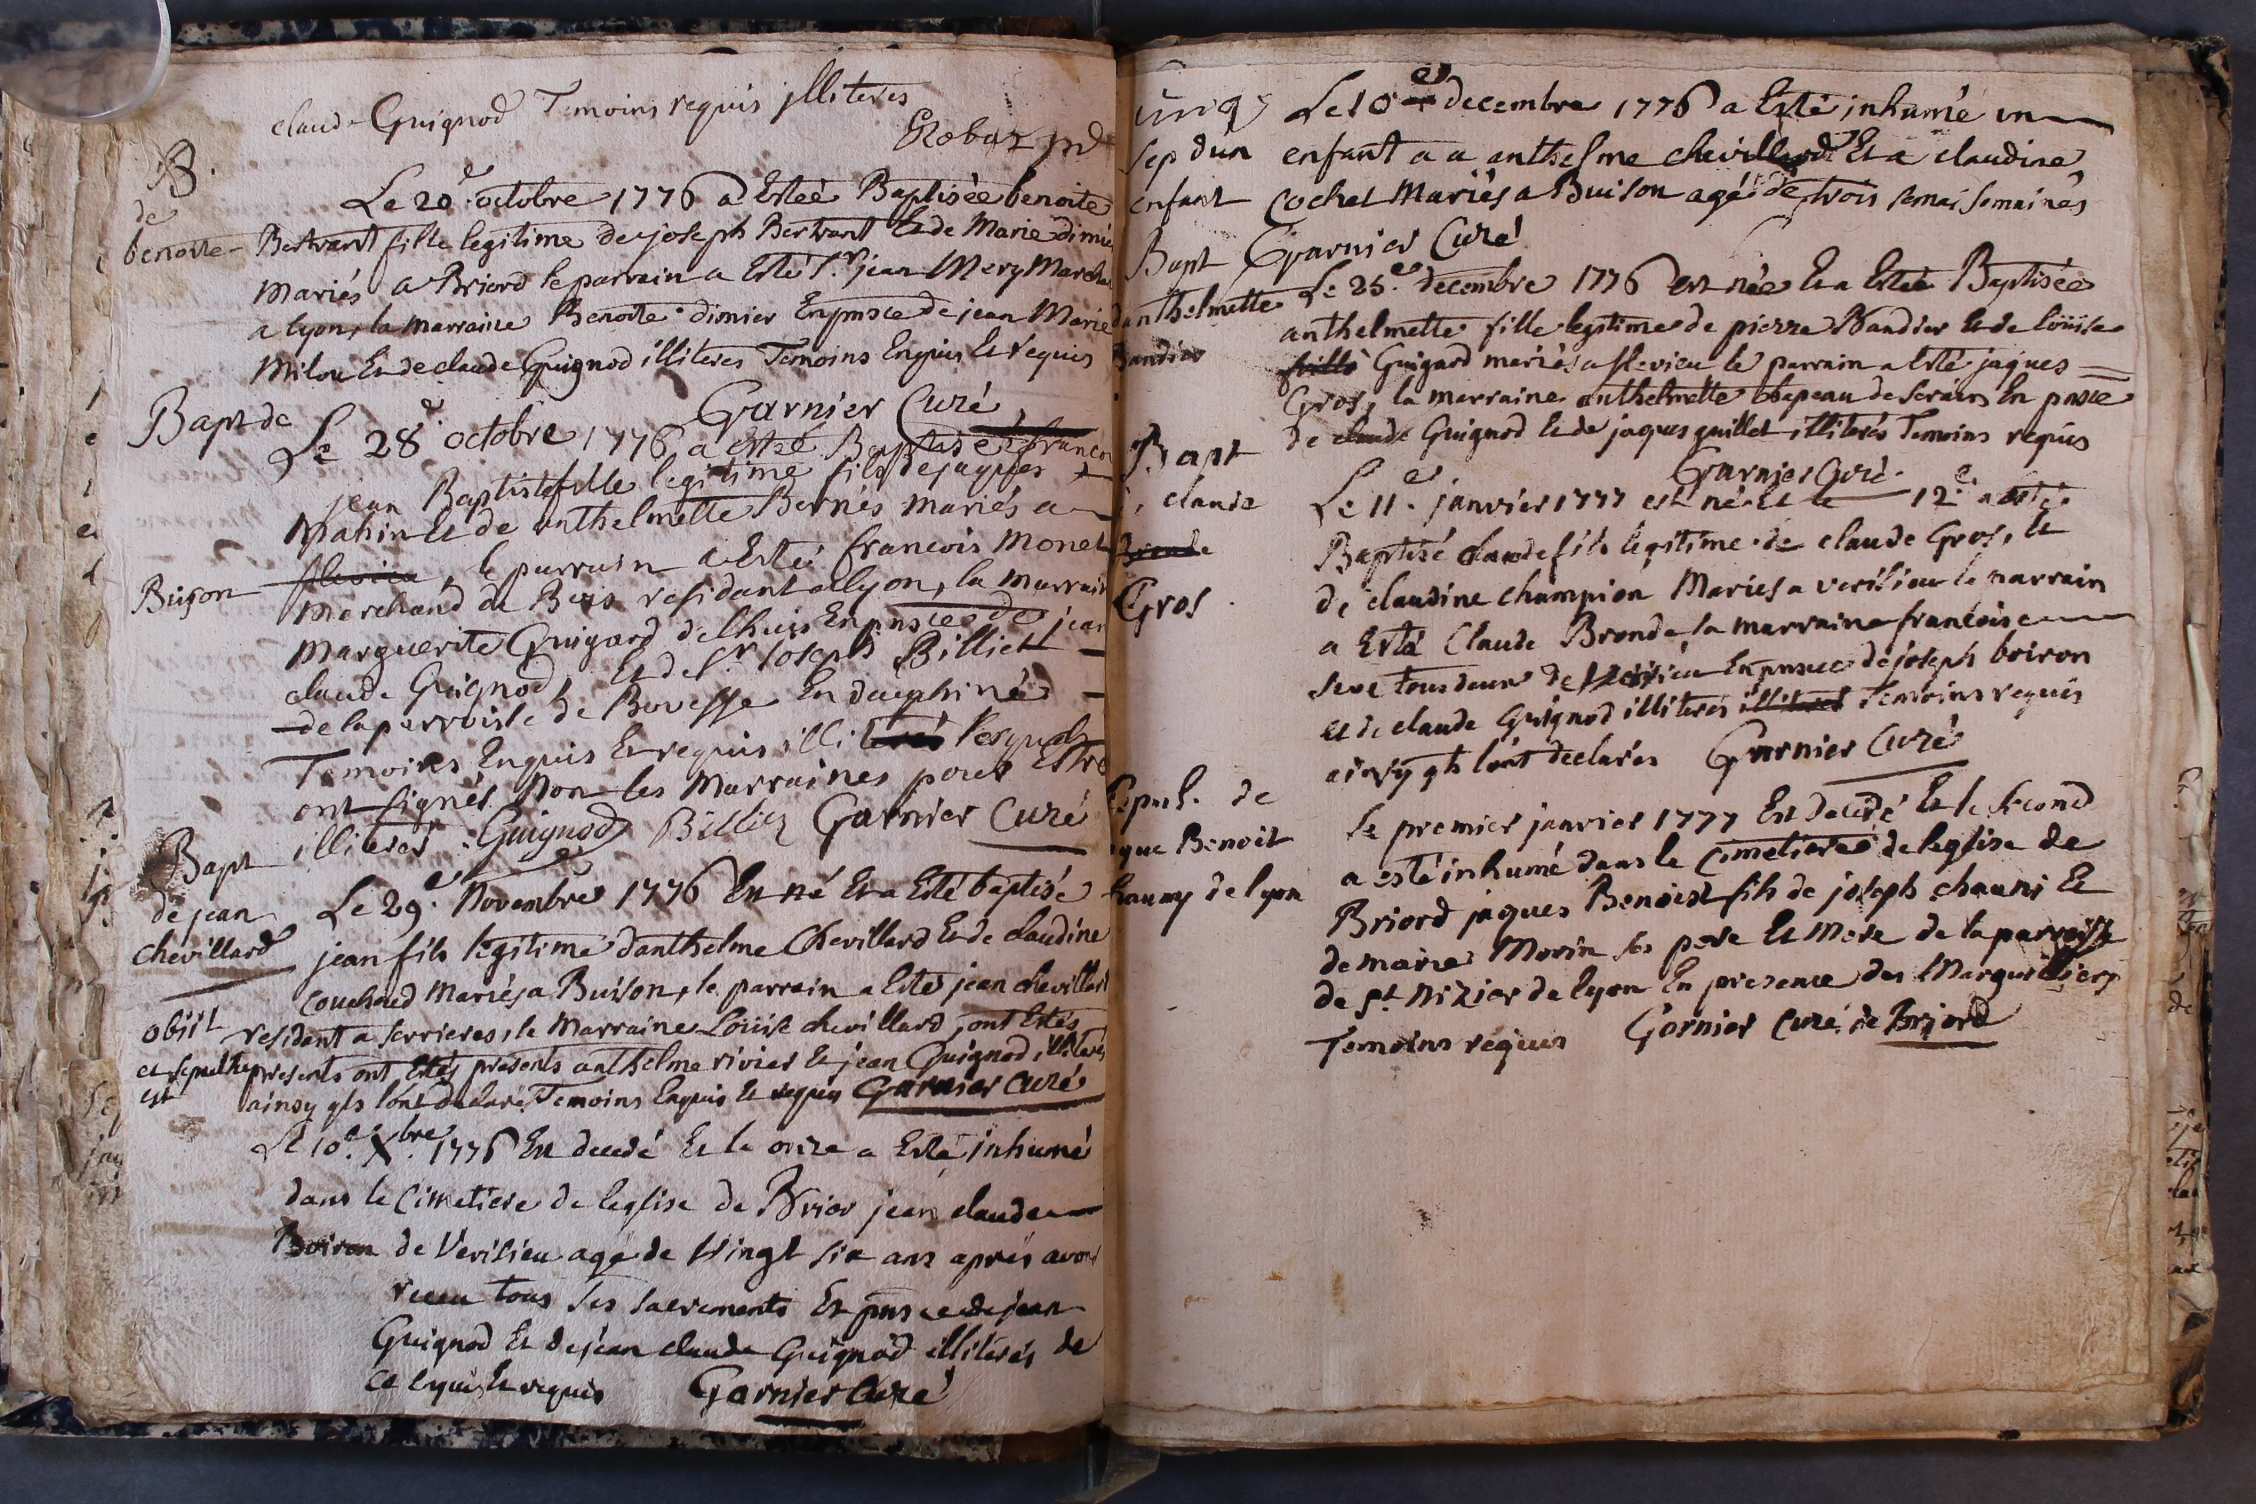 claude Guignod Temoins requis jlliteres
B.
de
benoite
Le 20e. octobre 1776 a Estée Baptisée benoite
Bertrant fille legitime de joseph Bertrant Et de Marie
Mariés a Briord le parrain a Esté Sr. jean Mery
a lyon, la marraine Benoite dimier En pnsce de jean Marie
Milon Et de claude Guignod illiteres Temoins Enquis Et requis
Garnier Curé
Bapt de
Le 28e octobre 1776 a esté Baptisé
jean Baptiste fille legitime fils de jaques
Mahin Et de anthelmette Bernés mariés a
Buison
flevieu, le parrain a Esté francois Monet
Merchand de Bois residant a lyon, la
Marguerite Guigard delhuis En pnsce de jean
claude Guignod Et de Sr. joseph Billiet
de la parroisse de Bouesse En dauphiné
Temoins Enquis Et requis illiterés lesquels
ont signés Non les Marraines pour Estre
illiterés. Guignod Billiet Garnier Curé
Bapt
de jean
chevillard
Le 29e. Novembre 1776 Est né Et a Esté baptisé
jean fils legitime danthelme Chevillard Et de claudine
couchoud Mariés a Buison, le parrain a Esté jean chevillard
obiit
et sepulthe
est
residant a serrieres, la Marraine Loüise chevillard, ont Estés
presents ont Estés presents anthelme rivier Et jean Guignod, illiterés
ainsy qls lont declaré Temoins Enquis Et requis Garnier Curé
Le 10e. Xbre. 1776 Est decedé Et le onze a Esté inhumé
dans le Cimetiere de leglise de Brior jean claude
Boiron de Verisieu agé de Vingt six ans aprés avoir
receu tous ses sacrements Et pnsce de jean
Guignod Et de jean claude Guignod illiterés de
ce Enquis Et requis Garnier Curé
Sep dun
enfant
Le 10e decembre 1776 a Esté inhumé un
enfant a a anthelme chevillard Et a claudine
Cochet Mariés a Buison agé de trois semai semaines
Garnier Curé
Bapt
danthelmette
Baudier
Le 25e. decembre 1776 est née Et a Estée Baptisée
anthelmette fille legitime de pierre Baudier Et de loüise
fille Guigard mariés a flevieu le parrain a Esté jaques
Gros, la marraine anthelmette de serains En pnsce
de claude Guignod Et de jaques guillet illiterés Temoins requis
Garnier Curé.
Bapt
claude
Bronde
Gros
Le 11e. janvier 1777 est né Et le 12e. a esté
Baptisé claude fils legitime de claude Gros, Et
de claudine champion Mariés a verisieu le parrain
a Esté Claude Bronde la marraine francoise
seve tous deux de Verisieu En pnsce de joseph boiron
et de claude Guignod illiterés illiterés Temoins requis
ainsy qls lont declarés Garnier Curé
Sepul. de
jaque Benoit
chauny de lyon
Le premier janvier 1777 Est decedé Et le second
a esté inhumé dans le Cimetiere de leglise de
Briord jaques Benoist fils de joseph chauni Et
de marie Morin ses pere Et Mere de la parroisse
de St. Nizier de lyon En presence des Marguilliers
Temoins requis Garnier Curé de Briord